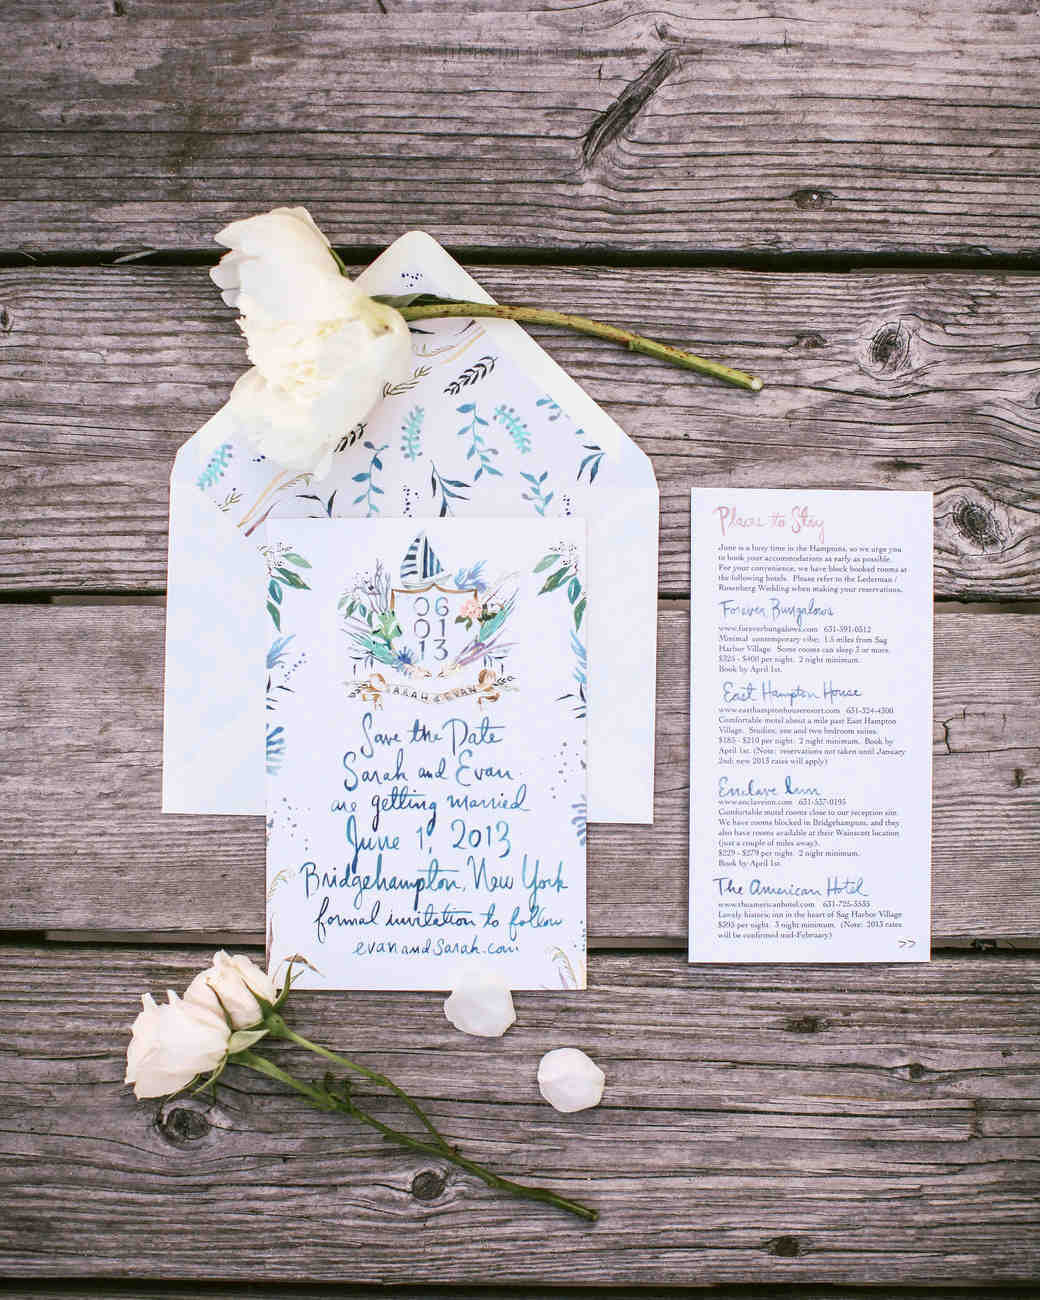 06
01
13
SARAH & EVAN
Save the Date
Sarah and Evan
are getting married
June 1, 2013
Bridgehampton, New York
formal invitation to follow
evanandsarah.com
Places to Stay
June is a busy time in the Hamptons, so we urge you
to book your accommodations as early as possible.
For your convenience, we have block booked rooms at
the following hotels. Please refer to the Lederman /
Rosenberg Wedding when making your reservations.
Forever Bungalows
www.foreverbungalows.com 631-591-0512
Minimal contemporary vibe; 1.5 miles from Sag
Harbor Village. Some rooms can sleep 3 or more.
$325 - $400 per night. 2 night minimum.
Book by April 1st.
East Hampton House
www.easthamptonhouseresort.com 631-324-4300
Comfortable motel about a mile past East Hampton
Village. Studios, one and two bedroom suites.
$185 - $210 per night. 2 night minimum. Book by
April 1st. (Note: reservations not taken until January
2nd; new 2013 rates will apply)
Enclave Inn
www.enclaveinn.com 631-537-0195
Comfortable motel rooms close to our reception site.
We have rooms blocked in Bridgehampton, and they
also have rooms available at their Wainscott location
(just a couple of miles away).
$229 - $279 per night. 2 night minimum.
Book by April 1st.
The American Hotel
www.theamericanhotel.com 631-725-3535
Lovely historic inn in the heart of Sag Harbor Village
$395 per night. 3 night minimum. (Note: 2013 rates
will be confirmed mid-February)
>>